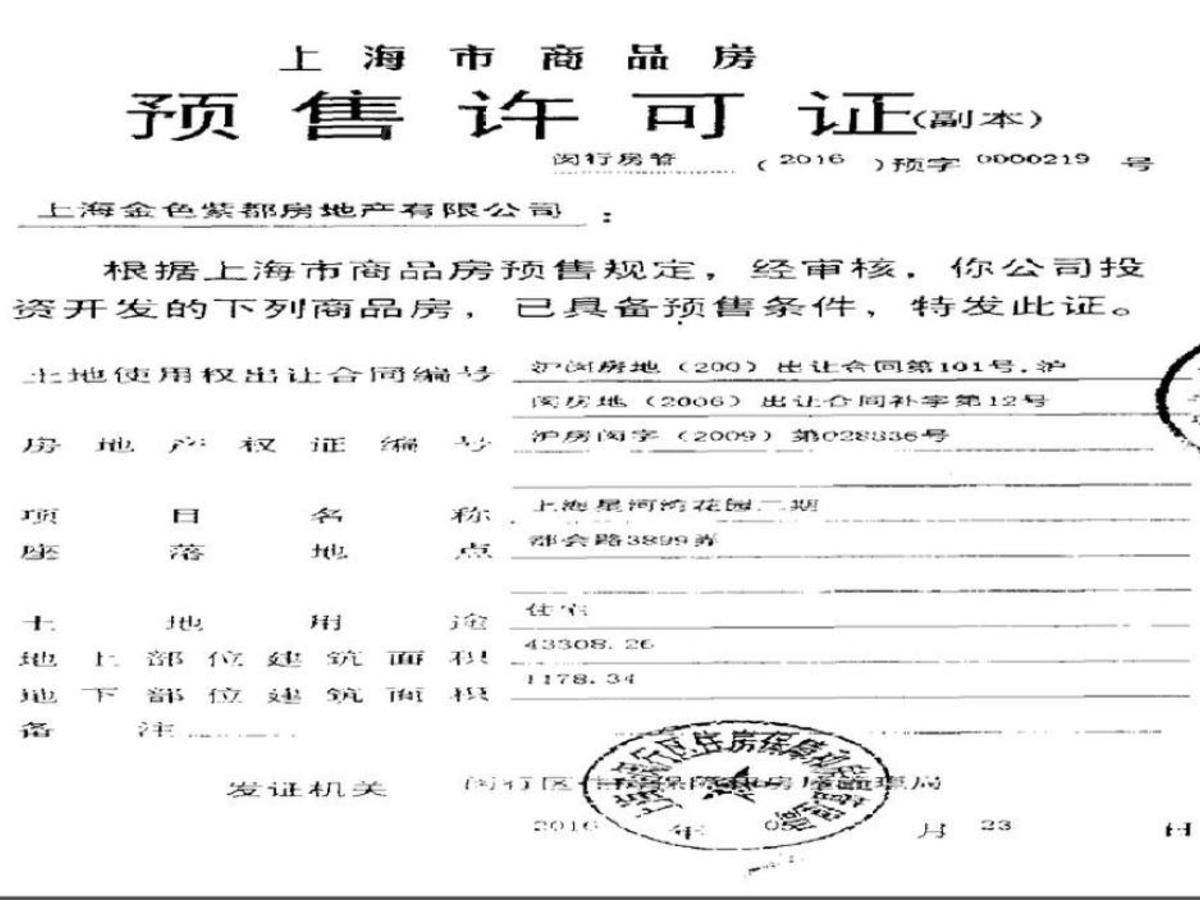 上海市商品房
预售许可证(副本)
闵行房管 (2016)预字0000219号
上海金色紫都房地产有限公司：
根据上海市商品房预售规定，经审核，你公司投
资开发的下列商品房，已具备预售条件，特发此证。
土地使用权出让合同编号 沪闵房地（200）出让合同第101号,沪
闵房地（2006）出让合同补字第12号
房地产权证编号 沪房闵字（2009）第028336号
项目名称 上海星河湾花园二期
座落地点 都会路3899弄
土地用途 住宅
地上部位建筑面积 43308.26
地下部位建筑面积 1178.34
备注
发证机关 闵行区住房保障和房屋管理局
2016年05月23日